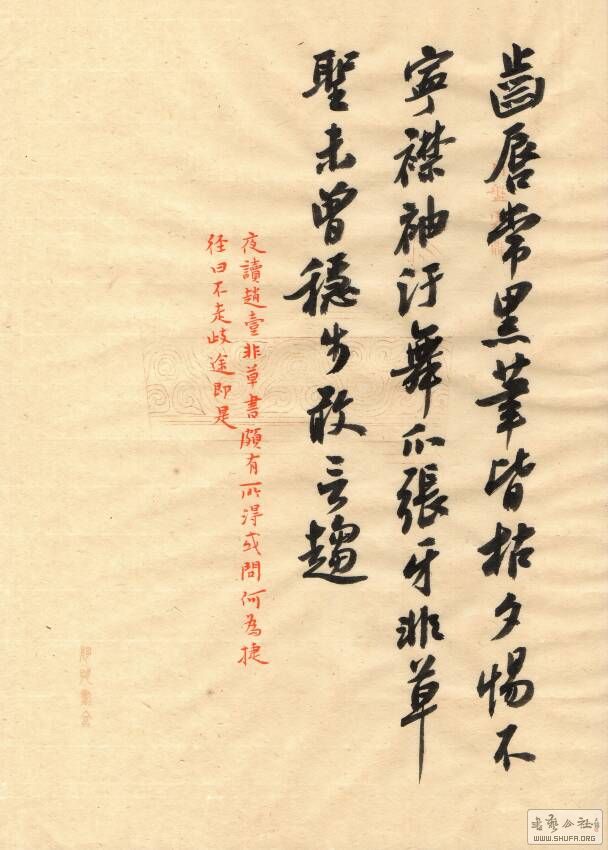 齒唇常黑筆皆枯夕惕不
寧襟袖汙舞爪張牙非草
聖未曾穩步敢言趨
夜讀趙壹非草書頗有所得或問何為捷
徑曰不走歧途即是
書藝公社
WWW.SHUFA.ORG